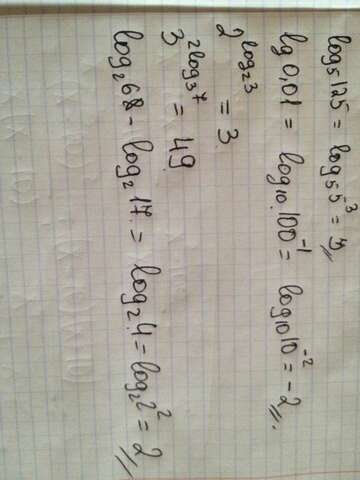 log₅125 = log₅5⁻³ = 3
lg 0,01 = log₁₀100⁻¹ = log₁₀10⁻² = -2.
2^log₂3 = 3
3^2log₃7 = 49
log₂68 - log₂17 = log₂4 = log₂2² = 2